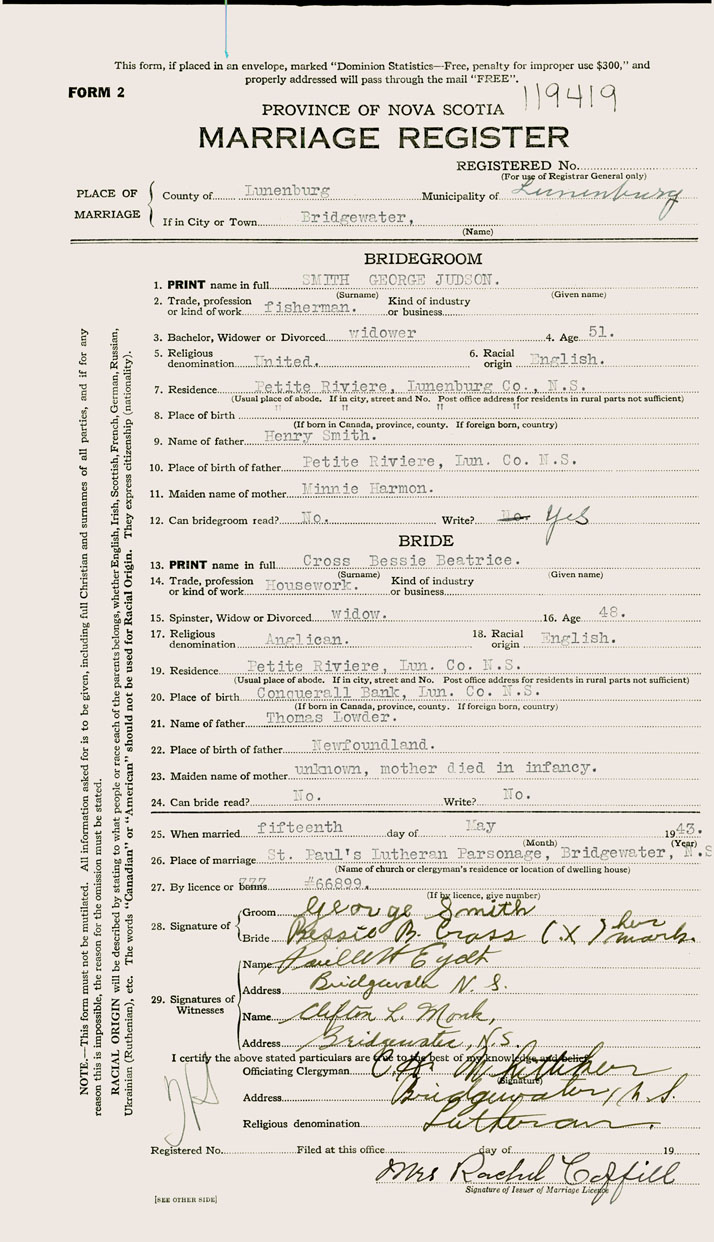 This form, if placed in an envelope, marked "Dominion Statistics—Free, penalty for improper use $300," and
properly addressed will pass through the mail "FREE".
FORM 2
119419
PROVINCE OF NOVA SCOTIA
MARRIAGE REGISTER
REGISTERED No.
(For use of Registrar General only)
PLACE OF MARRIAGE
County of Lunenburg Municipality of Lunenburg
If in City or Town Bridgewater,
(Name)
BRIDEGROOM
1. PRINT name in full SMITH GEORGE JUDSON.
(Surname) (Given name)
2. Trade, profession or kind of work fisherman. Kind of industry or business
3. Bachelor, Widower or Divorced widower 4. Age 51.
5. Religious denomination United. 6. Racial origin English.
7. Residence Petite Riviere, Lunenburg Co., N.S.
(Usual place of abode. If in city, street and No. Post office address for residents in rural parts not sufficient)
8. Place of birth " " " "
(If born in Canada, province, county. If foreign born, country)
9. Name of father Henry Smith.
10. Place of birth of father Petite Riviere, Lun. Co. N.S.
11. Maiden name of mother Minnie Harmon.
12. Can bridegroom read? No. Write? No. Yes
BRIDE
13. PRINT name in full Cross Bessie Beatrice.
(Surname) (Given name)
14. Trade, profession or kind of work Housework. Kind of industry or business
15. Spinster, Widow or Divorced widow. 16. Age 48.
17. Religious denomination Anglican. 18. Racial origin English.
19. Residence Petite Riviere, Lun. Co. N.S.
(Usual place of abode. If in city, street and No. Post office address for residents in rural parts not sufficient)
20. Place of birth Conquerall Bank, Lun. Co. N.S.
(If born in Canada, province, county. If foreign born, country)
21. Name of father Thomas Lowder.
22. Place of birth of father Newfoundland.
23. Maiden name of mother unknown, mother died in infancy.
24. Can bride read? No. Write? No.
25. When married fifteenth day of May 1943.
(Month) (Year)
26. Place of marriage St. Paul's Lutheran Parsonage, Bridgewater, N.S
(Name of church or clergyman's residence or location of dwelling house)
27. By licence or banns #66899.
(If by licence, give number)
28. Signature of
Groom George Smith
Bride Bessie B. Cross (X) her mark.
29. Signatures of Witnesses
Name
Address Bridgewater N. S.
Name Clifton L. Monk,
Address Bridgewater, N.S.
I certify the above stated particulars are true to the best of my knowledge and belief.
Officiating Clergyman
(Signature)
Address Bridgewater, N.S.
Religious denomination Lutheran.
Registered No. Filed at this office day of 19
Mrs Rachel Coffill
Signature of Issuer of Marriage Licence
[SEE OTHER SIDE]
NOTE.—This form must not be mutilated. All information asked for is to be given, including full Christian and surnames of all parties, and if for any
reason this is impossible, the reason for the omission must be stated.
RACIAL ORIGIN will be described by stating to what people or race each of the parents belongs, whether English, Irish, Scottish, French, German, Russian,
Ukrainian (Ruthenian), etc. The words "Canadian" or "American" should not be used for Racial Origin. They express citizenship (nationality).